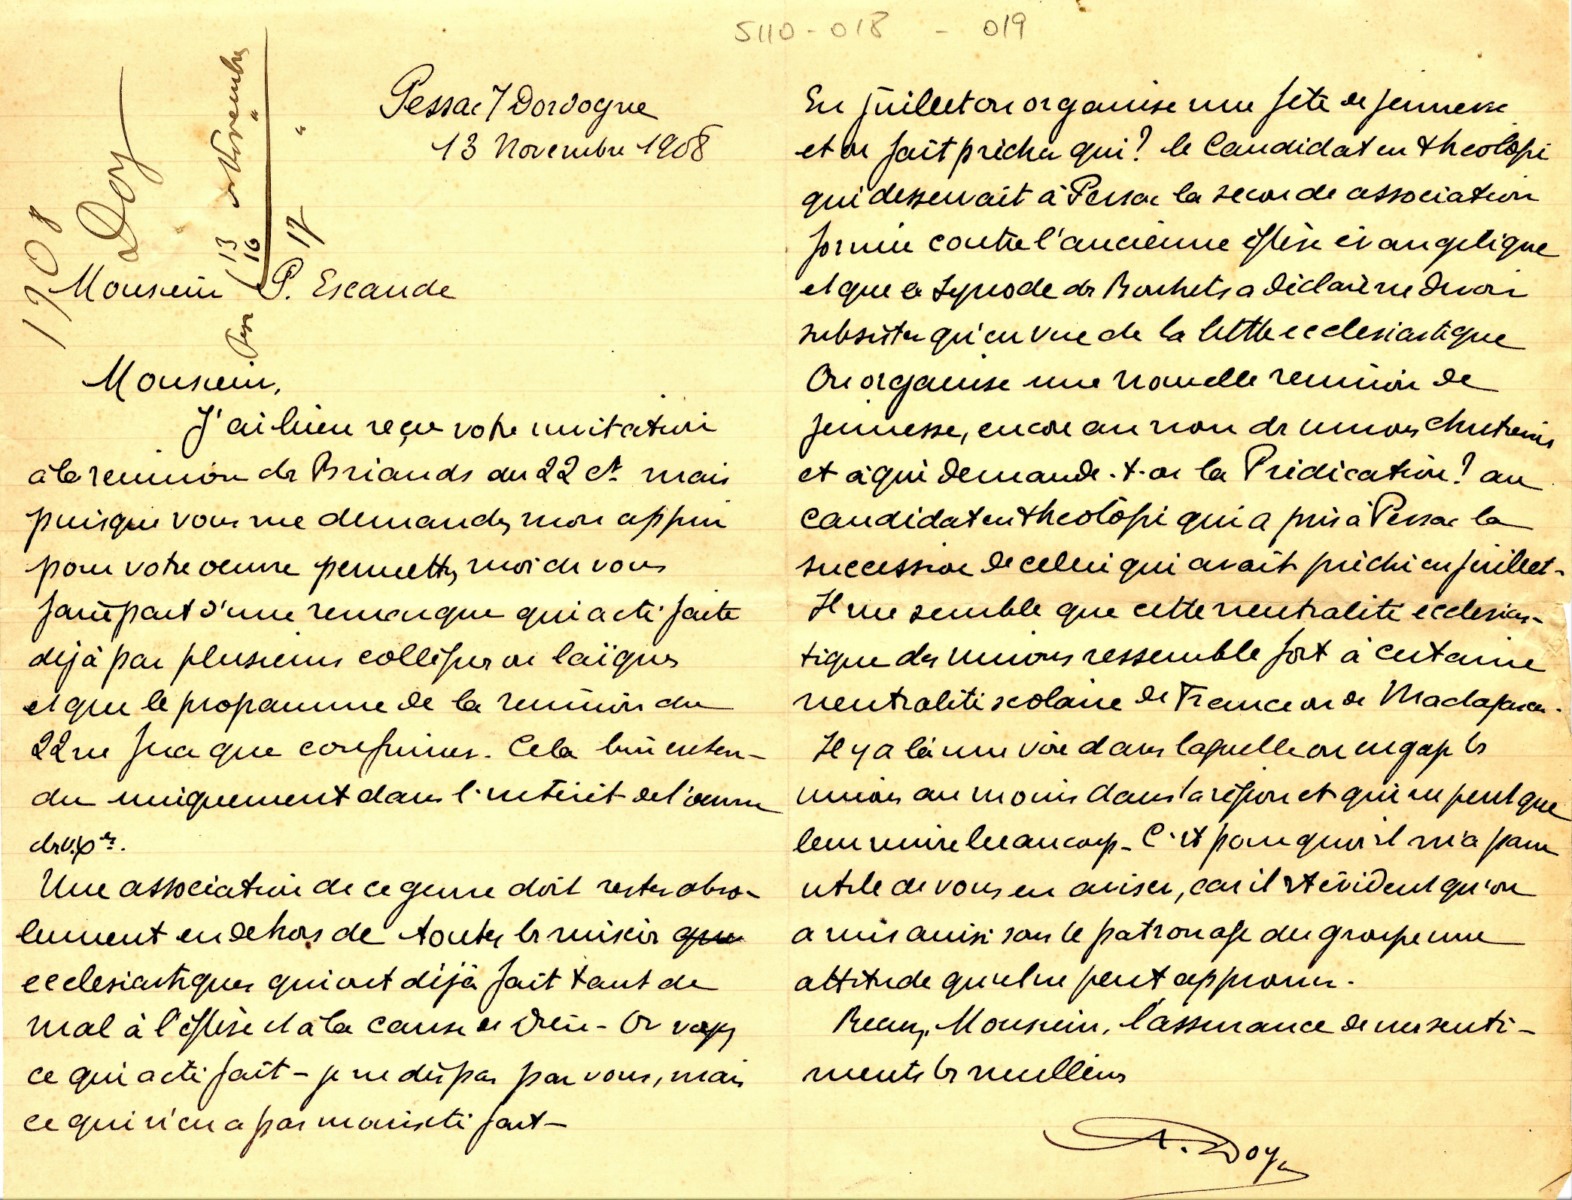 5110-018 - 019
1908
Doy
13 Novembre
16 "
17 "
Pessac s/ Dordogne
13 Novembre 1908
Monsieur P. Escande
Monsieur,
J'ai bien reçu votre invitation
à la reunion de Briands du 22 ct. mais
puisque vous me demandez mon appui
pour votre oeuvre permettez moi de vous
faire part d'une remarque qui a été faite
déjà par plusieurs collègues ou laïques
et que le programme de la reunion du
22 ne fera que confirmer. Cela bien enten-
du uniquement dans l'intérêt de l'oeuvre
Une association de ce genre doit rester abso-
lument en dehors de toutes les misères que
ecclesiastiques qui ont déjà fait tant de
mal à l'église et à la cause de Dieu - Or voyez
ce qui a été fait - je ne dis pas par vous, mais
ce qui n'en a pas moins été fait -
En juillet on organise une fête de jeunesse
et on fait prêcher qui? le Candidat en théologie
qui desservait à Pessac la seconde association
formée contre l'ancienne église évangelique
et que le Synode de Bouhets a déclaré ne devoir
subsister qu'en vue de la lutte ecclesiastique
On organise une nouvelle reunion de
jeunesse, encore au nom des unions chretiennes
et à qui demande-t-on la Prédication? au
candidat en théologie qui a pris à Pessac la
succession de celui qui avait prêché en juillet-
Il me semble que cette neutralité ecclesias-
tique des unions ressemble fort à certaine
neutralité scolaire de France ou de Madagascar.
Il y a là une voie dans laquelle on engage les
unions au moins dans la région et qui ne peut que
leur nuire beaucoup - C'est pourquoi il m'a paru
utile de vous en aviser, car il est évident qu'on
a mis ainsi sous le patronage du groupe une
attitude qu'il ne peut approuver.
Recevez, Monsieur, l'assurance de mes senti-
ments les meilleurs
A. Doy